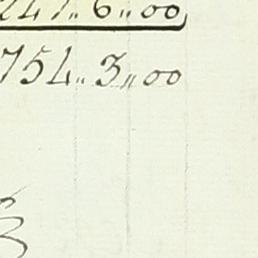 247〃 6〃 00
754〃 3〃 00